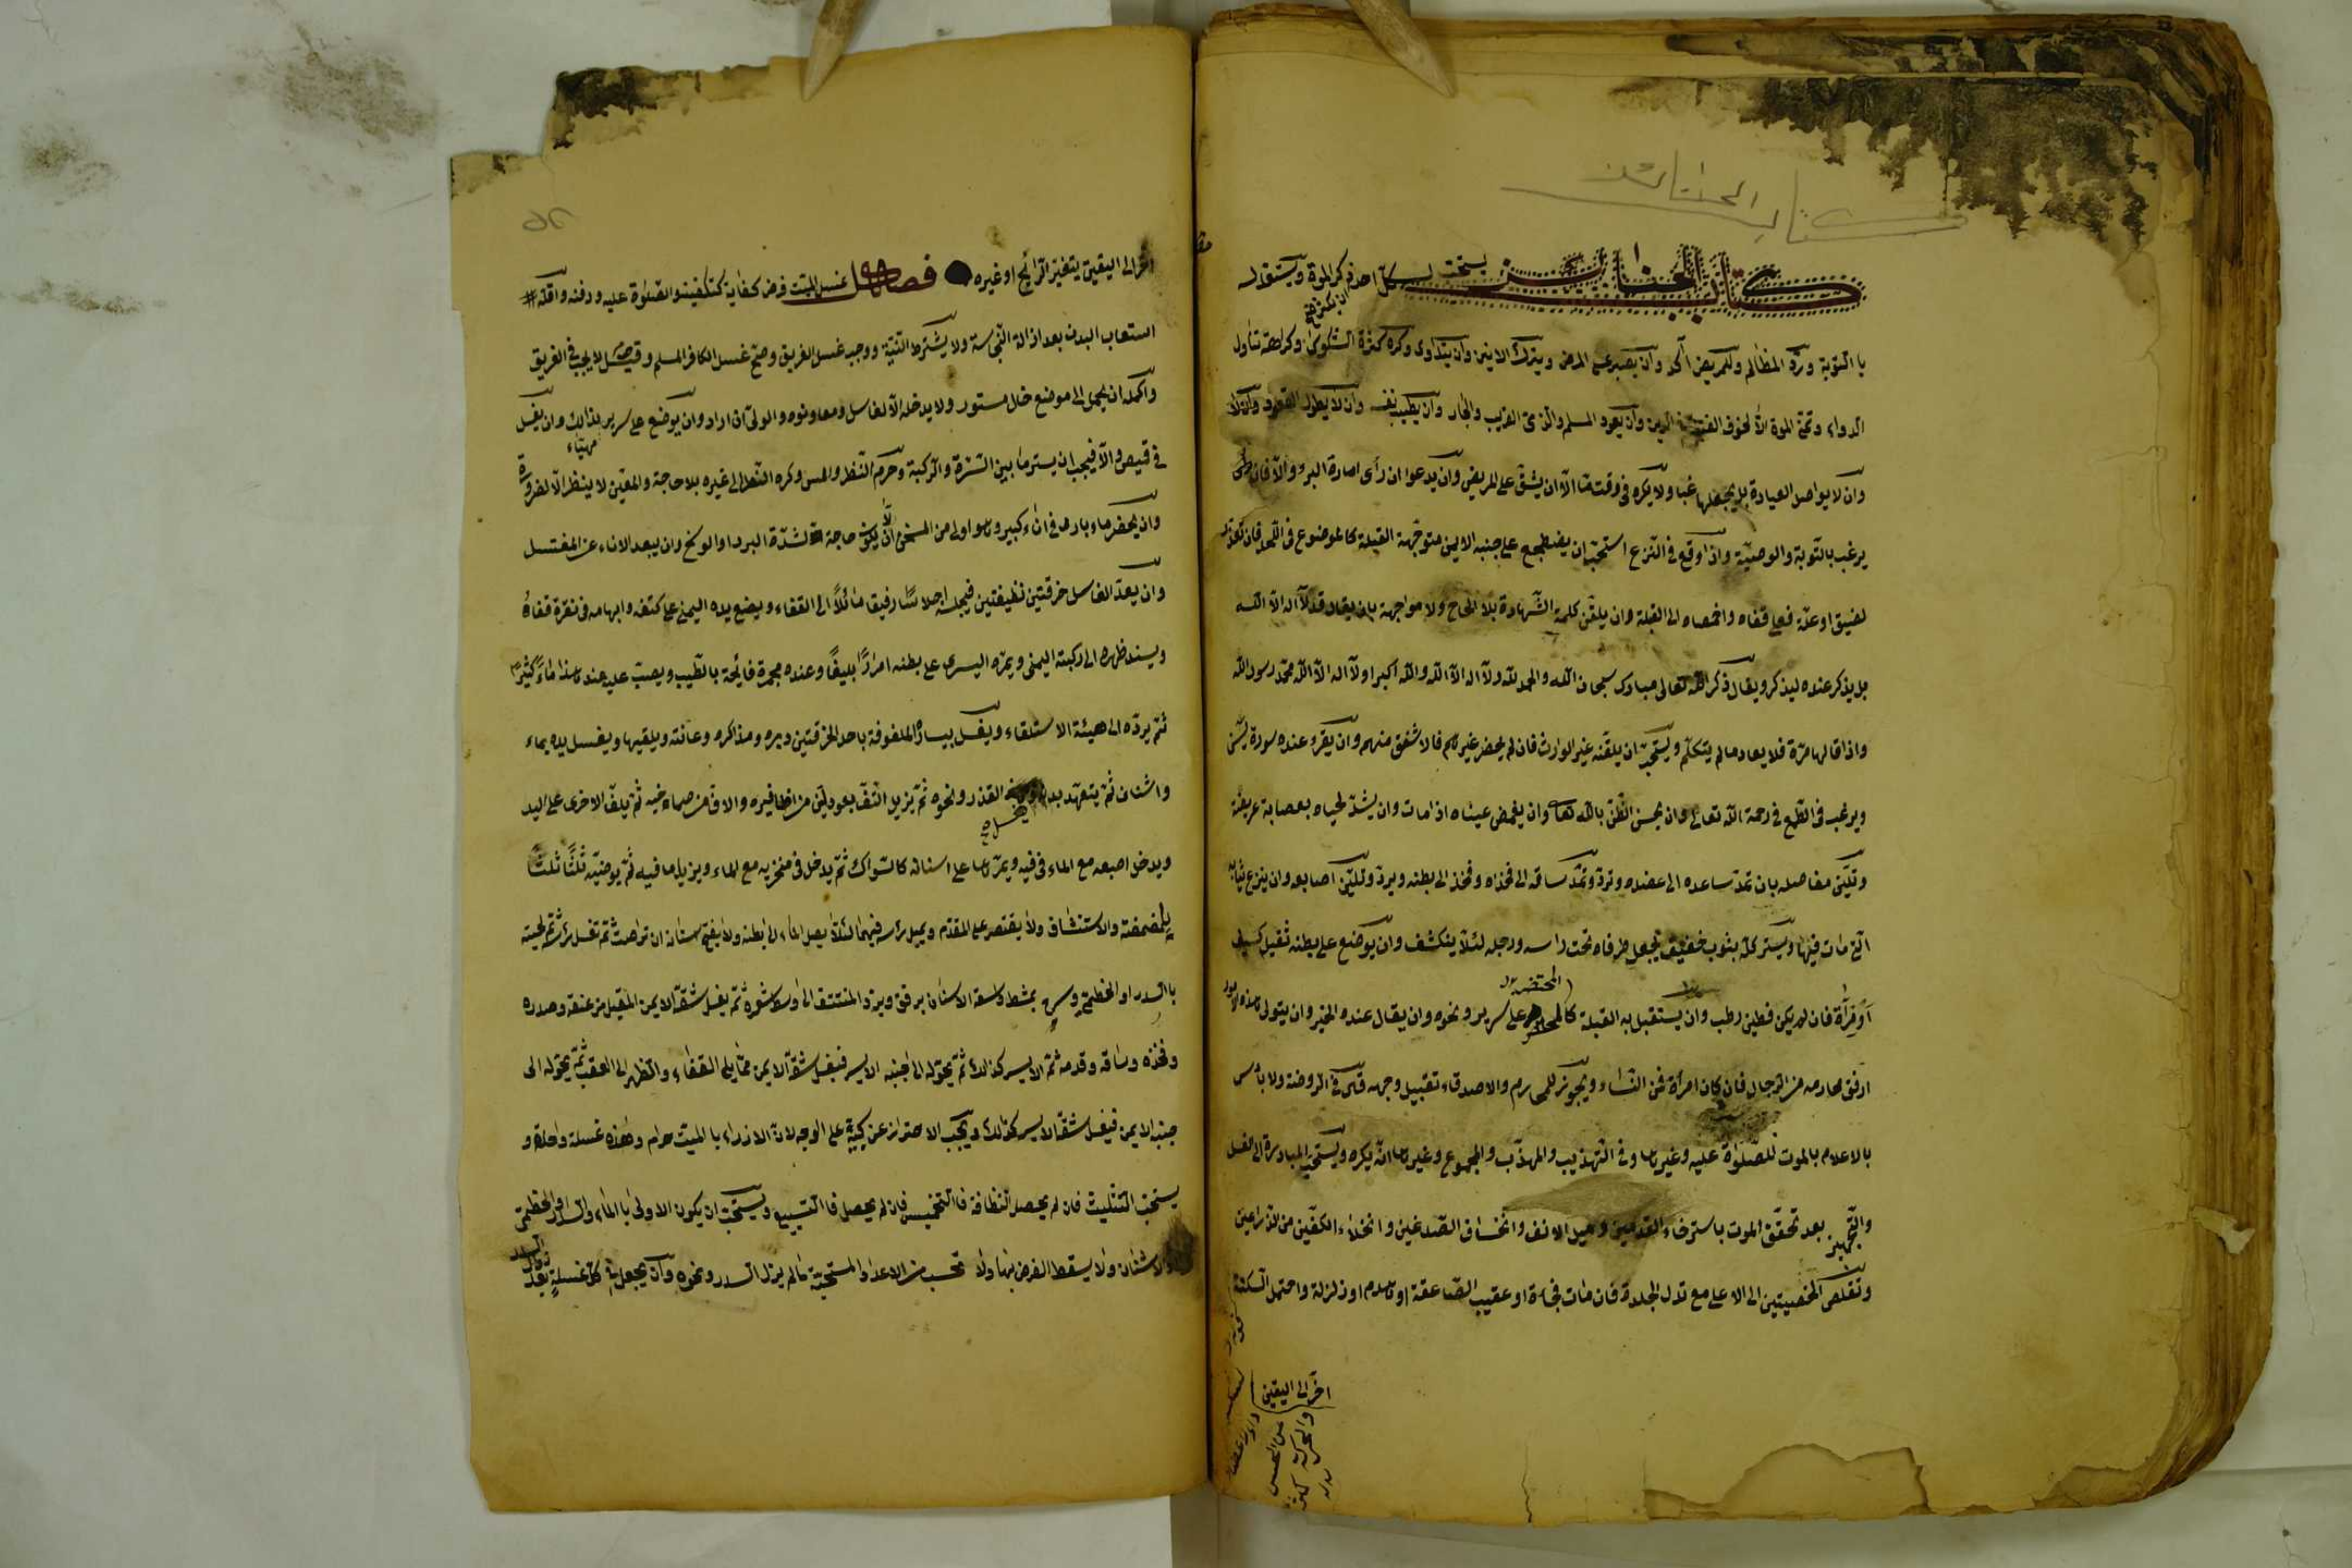 كتاب الجنائز
كتاب الجنائز يستحب لكل احد ذكر الموة ويستعد له
ان يكثر صح
با التوبة ورد المظالم وللمريض آكد وان يصبر على المرض ويترك الانين وان يتداوى وكره كثرة الشكوى وكراهة تناول
الدواء وتمنى الموة الا لخوف الفتنة في الدين وان يعود المسلم والذمى القريب والجار وان يطيب نفسه وان لا يطول القعود
وان لا يواصل العيادة بل يجعلها غبا ولا يكره فى وقت ما الا ان يشق على المريض وان يدعوا ان رأى امارة البرء والا فان
يرغب بالتوبة والوصية واذا وقع في النزع استحب ان يضطجع على جنبه الايمن متوجهة القبلة كالموضوع فى اللحد فان تعذر
لضيق او علة فعلى قفاه واخمصاه الى القبلة وان يلقن كلمة الشهادة بلا الحاح ولا مواجهة بان يقال قل لا اله الا الله
بل يذكر عنده ليذكر ويقال ذكر الله تعالى مبارك سبحان الله والحمد لله ولا اله الا الله والله اكبر او لا اله الا الله محمد رسول الله
واذا قالها مرة فلا يعاد ما لم يتكلم ويستحب ان يلقنه غير الوارث فان لم يحضر غيرهم فالاشفق منهم وان يقرء عنده سورة يس
ويرغب فى الطمع فى رحمة الله تعالى وان يحسن الظن بالله تعا وان يغمض عيناه اذا مات وان يشد لحياه بعصابة عريضة
وتلين مفاصله بان تمد ساعده الى عضده وترد وتمد ساقه الى فخذاه وفخذ الى بطنه ويرد وتلين اصابعه وان ينزع ثيابه
التى مات فيها ويستر كله بثوب خفيف تجعل طرفاه تحت راسه ورجله لئلا ينكشف وان يوضع على بطنه ثقيل كسيف
المحتضر
او مرآة فان لم يكن فطين رطب وان يستقبل به القبلة على سرير ونحوه وان يقال عنده الخير وان يتولى هذه الامور
ارفق محارمه من الرجال فان كان امرأة فمن النساء ويجوز للمحارم والاصدقاء تقبيل وجهه قال فى الروضة ولا باس
بالاعلام بالموت للصلوة عليه وغيرها وفى التهذيب والمهذب والمجموع وغيرها انه يكره ويستحب المبادرة الى الغسل
والتجهيز بعد تحقق الموت باسترخاء القدمين وميل الانف وانخساف الصدغين وانخلاء الكفين من الذراعين
وتقلص الخصيتين الى الاعلى مع تدل الجلدة فان مات فجاءة او عقيب الصاعقة او هدم او زلزلة واحتمل السكتة
اخر الى اليقين
اخر الى اليقين يتغير الرائح او غيره فصل غسل الميت فرض كفاية كتكفينه والصلوة عليه ودفنه واقله
استعاب البدن بعد ازالة النجاسة ولا يشترط النية ووجب غسل الغريق وصح غسل الكافر المسلم وقيل لا يجب في الغريق
واكمله ان يحمل الى موضع خال مستور ولا يدخله الا الغاسل ومعاونوه والولى ان اراد وان يوضع على سرير لذالك وان يغسل
مهيّاء
فى قميص والا فيجب ان يستر ما بين السرة والركبة وحرم النظر والمس وكره النظر الى غيره بلا حاجة والمعين لا ينظر الا لضرورة
وان يحضر ماء بارد فى اناء كبير وهو اولى من المسخن الا ان يكون حاجة لشدة البرد او الوسخ وان يبعد الاناء عن المغتسل
وان يعد الغاسل خرقتين نظيفتين فيجلسه اجلاسا رفيقا مائلا الى القفاء ويضع يده اليمنى على كتفه وابهامه فى نقرة قفاه
ويسند ظهره الى ركبته اليمنى ويمره اليسرى على بطنه امرارا بليغا وعنده مجمرة فائحة بالطيب ويصب عليه عند هذا ماء كثيرا
ثم يرده الى هيئة الاستلقاء ويغسل بيساره الملفوفة باحد الخرقتين دبره ومذاكره وعانته ويلقيها ويغسل يده بماء
واشنان ثم يتعهد بدنه القذر ونحوه ثم يزيل التف بعود لين من اظافيره والاف من صماخيه ثم يلف الاخرى على اليد
ويدخل اصبعه مع الماء فى فيه ويمرها على اسنانه كالسواك ثم يدخل فى منخريه مع الماء ويزيل ما فيه ثم يوضيه ثلثا ثلثا
بالمضمضة والاستنشاق ولا يقتصر على المقدم ويميل راسه فيهما لئلا يصل الماء الى بطنه ولا يفتح اسنانه ان تراصت ثم تغسل راسه ثم لحيته
باالسدر او الخطمى وسرح بمشط واسعة الاسنان برفق ويرد المنتتف الى شعوره ثم يغسل شقة الايمن المقبل من عنقه وصدره
وفخذه وساقه وقدمه ثم الايسر كذالك ثم يحوله الى جنبه الايسر فيغسل شقه الايمن مما يلى القفاء والظهر الى العقب ثم يحوله الى
جنبه الايمن فيغسل شقه الايسر كذالك ويجب الاحتراز عن كبه على الوجه لان الازراء بالميت حرام وهذه غسلة واحدة و
يستحب التثليث فان لم يحصل النظافة فاالتخميس فان لم يحصل فاالتسبيع ويستحب ان يكون الاولى باالماء والسدر او الخطمى
والاشنان ولا يسقط الفرض بها ولا تحسب من الاعداد المستحبة ما لم يزل السدر ونحوه وان يجعل كل غسلة بعد
زوال السدر